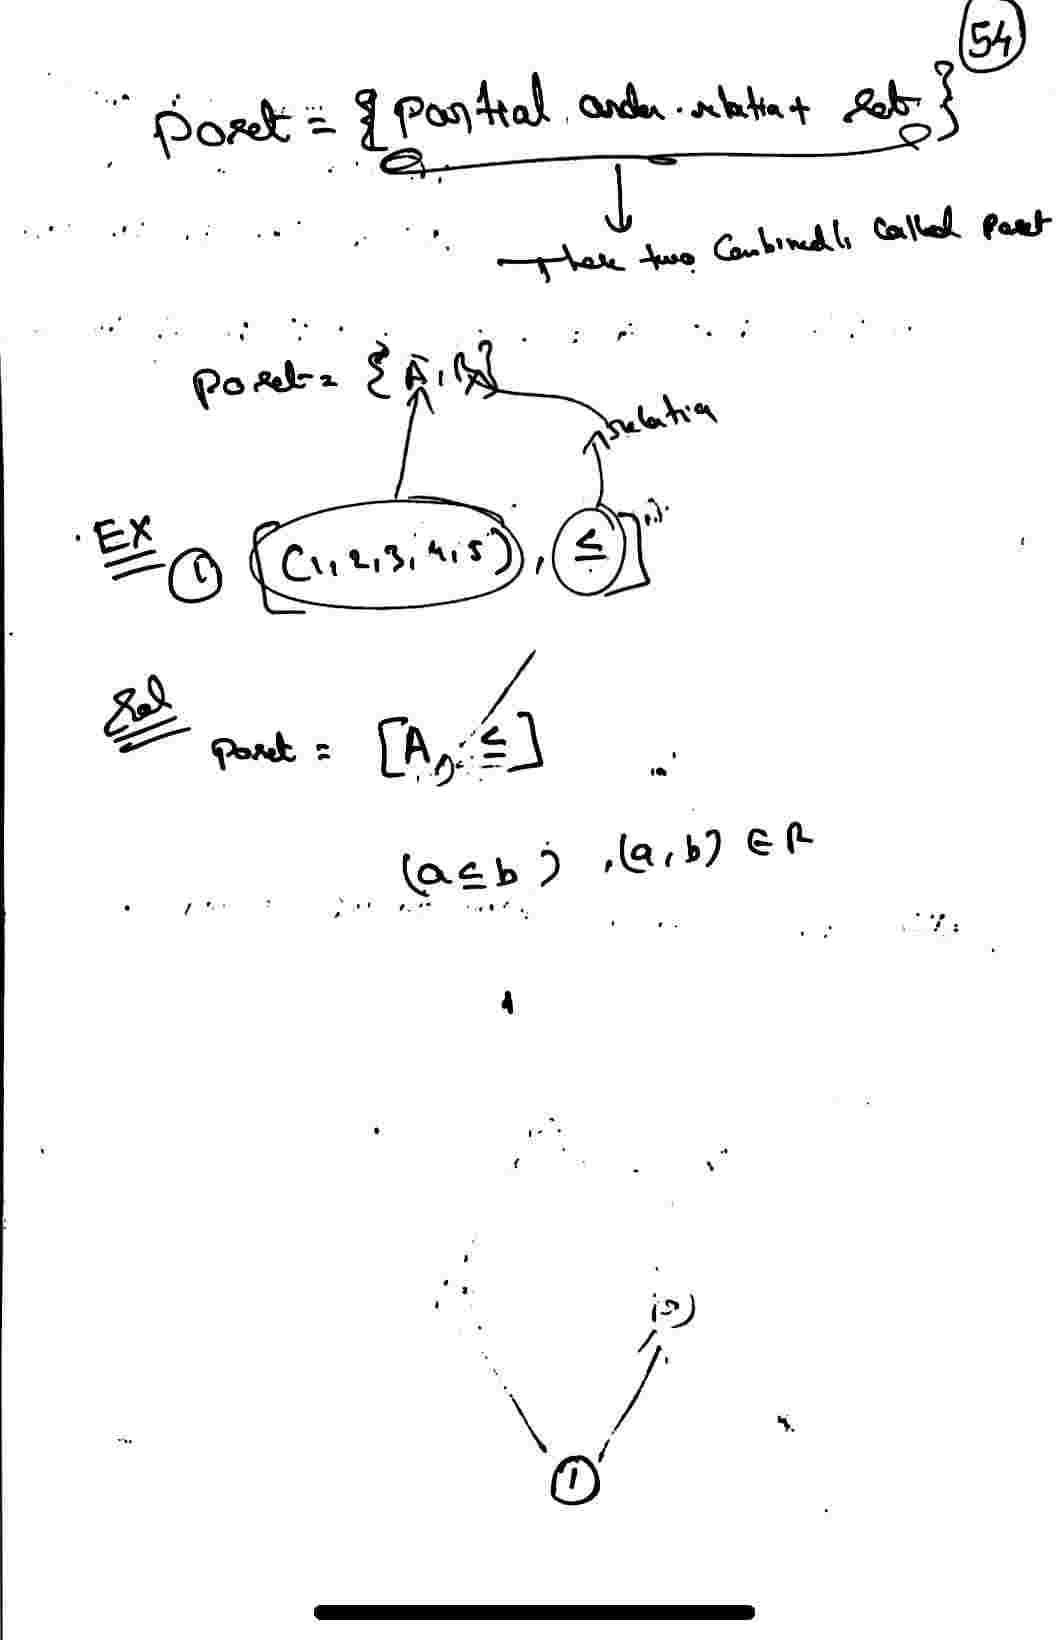 54
Poset = { Partial order relation + set }
These two Combinedly Called Poset
Poset = { A, R }
relation
EX
① [(1, 2, 3, 4, 5), ≤]
Sol
Poset = [A, ≤]
(a ≤ b), (a, b) ∈ R
①